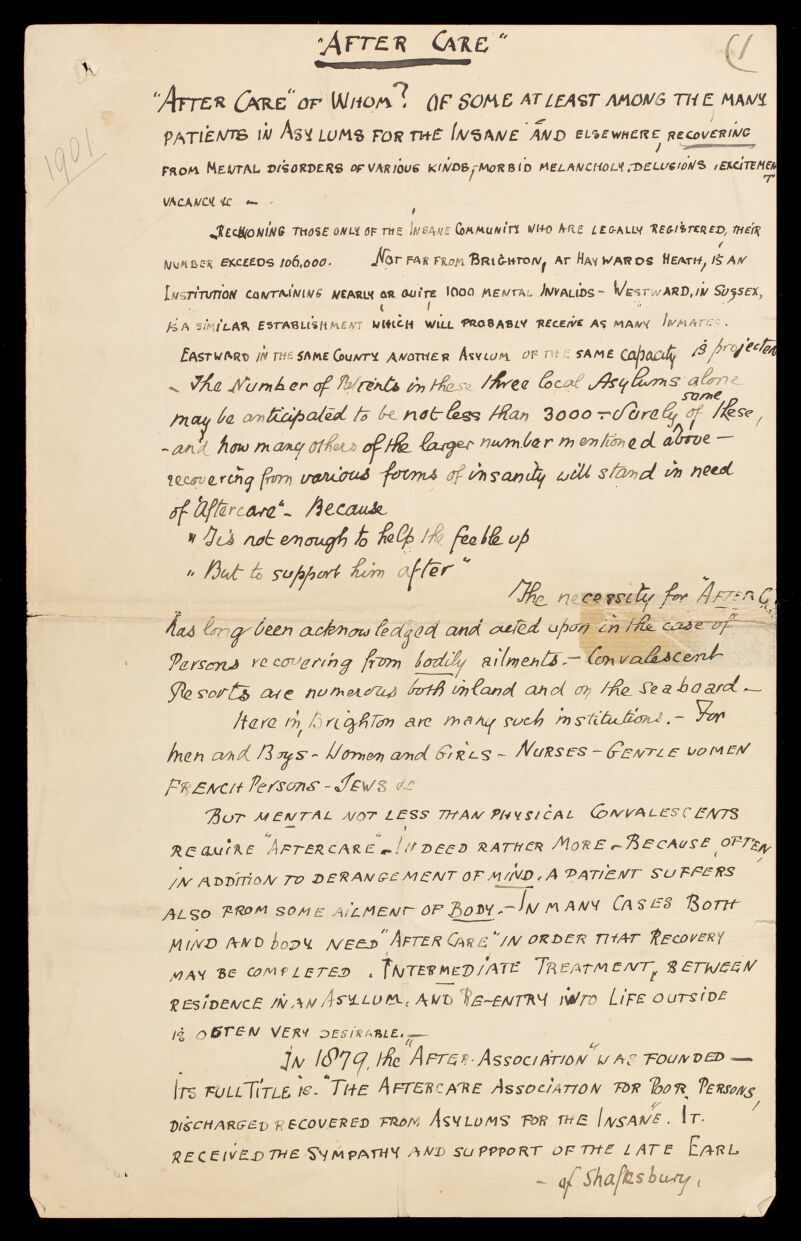 "AFTER CARE"
(1
1901
"AFTER CARE" OF WHOM? OF SOME AT LEAST AMONG THE MANY
PATIENTS IN ASYLUMS FOR THE INSANE AND ELSEWHERE, RECOVERING
FROM MENTAL DISORDERS OF VARIOUS KINDS, MORBID MELANCHOLY, DELUSIONS, EXCITEMENT
VACANCY &c -
RECKONING THOSE ONLY OF THE INSANE COMMUNITY WHO ARE LEGALLY REGISTERED, THEIR
NUMBER EXCEEDS 106,000. NOT FAR FROM BRIGHTON, AT HAYWARDS HEATH, IS AN
INSTITUTION CONTAINING NEARLY OR QUITE 1000 MENTAL INVALIDS - WESTWARD, IN SUSSEX,
IS A SIMILAR ESTABLISHMENT WHICH WILL PROBABLY RECEIVE AS MANY INMATES.
EASTWARD IN THE SAME COUNTY ANOTHER ASYLUM OF THE SAME capacity is projected
- The Number of Patients in these three local Asylums alone
may be anticipated to be not less than 3000 - Surely some of these,
- and how many others of the larger number mentioned above -
recovering from various forms of insanity will stand in need
of "Aftercare" - Because
" 'Tis not enough to help the feeble up
" But to support him after "
The necessity for "AFTER C.
has long been acknowledged and acted upon in the case of
Persons recovering from bodily ailments. - Convalescent
Resorts are numerous both inland and on the seaboard -
Here in Brighton are many such institutions. - For
Men and Boys - Women and GIRLS - NURSES - GENTLEWOMEN
FRENCH Persons - JEWS &c
BUT MENTAL NOT LESS THAN PHYSICAL CONVALESCENTS
REQUIRE "AFTERCARE" - INDEED RATHER MORE - BECAUSE, OFTEN,
IN ADDITION TO DERANGEMENT OF MIND, A PATIENT SUFFERS
ALSO FROM SOME AILMENT OF BODY. - IN MANY CASES BOTH
MIND AND body NEED "AFTER CARE" IN ORDER THAT RECOVERY
MAY BE COMPLETED. INTERMEDIATE TREATMENT, BETWEEN
RESIDENCE IN AN ASYLUM, AND RE-ENTRY INTO LIFE OUTSIDE
IS OFTEN VERY DESIRABLE. -
IN 1879, the "AFTER-ASSOCIATION" WAS FOUNDED -
ITS FULL TITLE IS - "THE AFTERCARE ASSOCIATION FOR POOR PERSONS,
DISCHARGED RECOVERED FROM ASYLUMS FOR THE INSANE". IT.
RECEIVED THE SYMPATHY AND SUPPPORT OF THE LATE EARL
- of Shaftesbury,